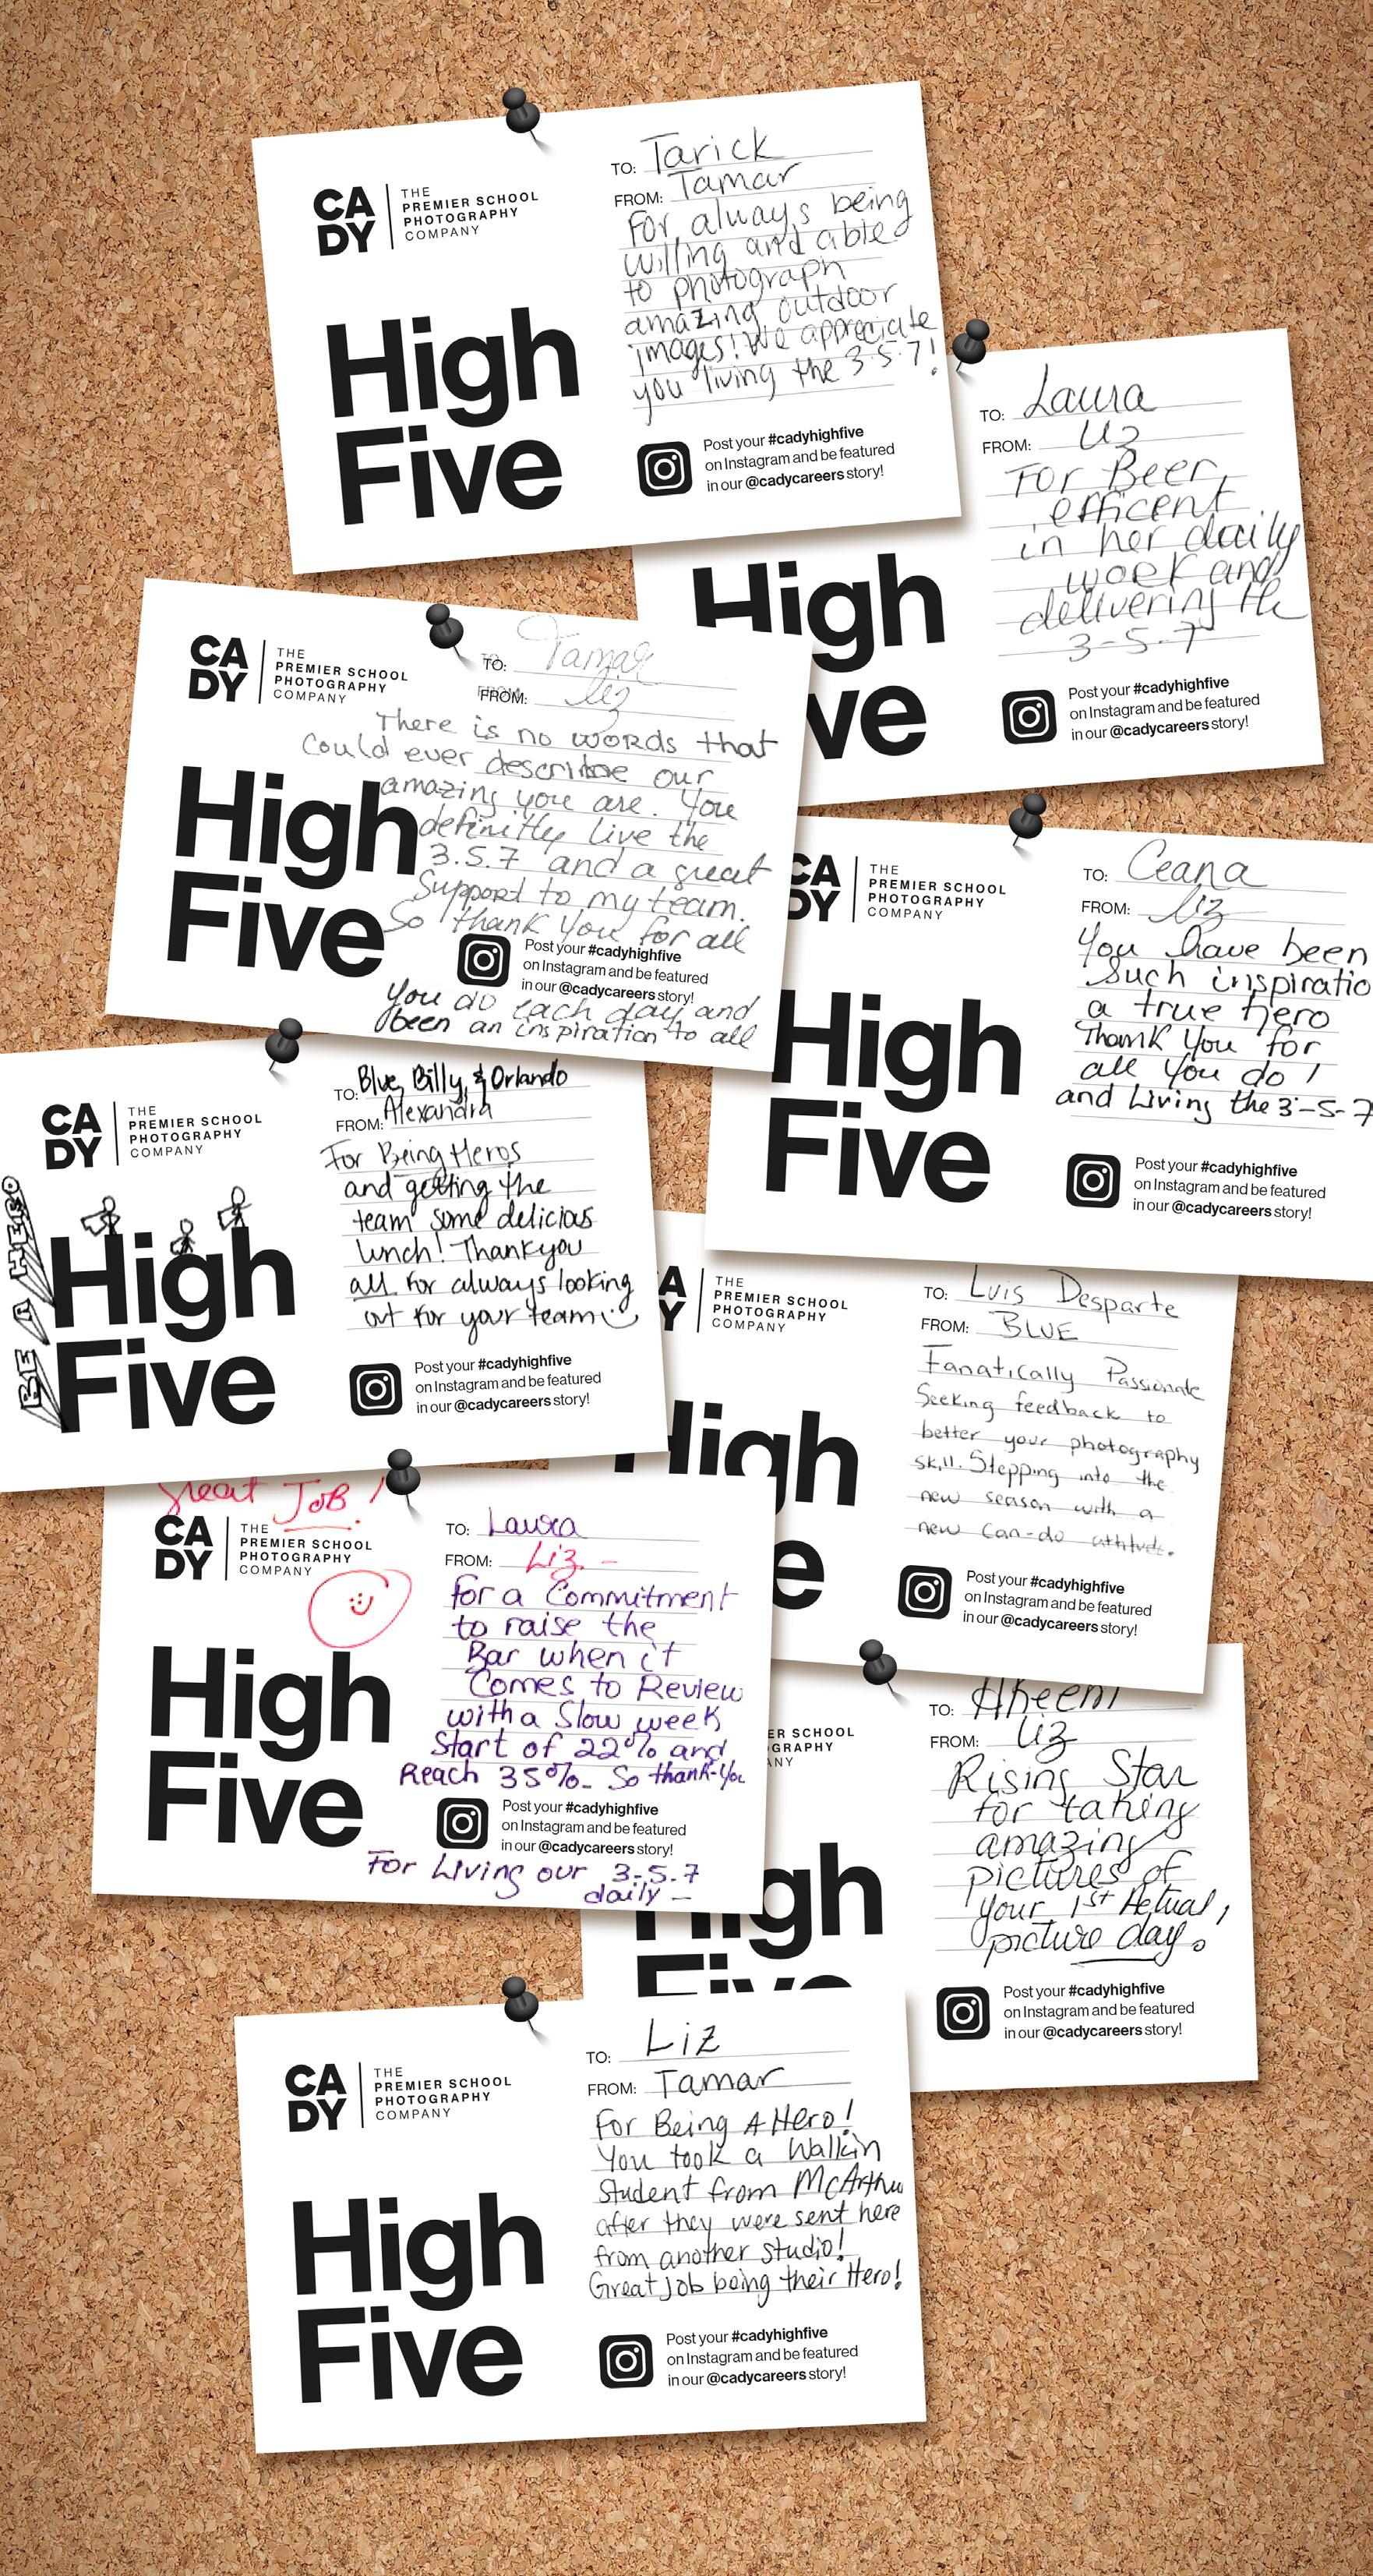 CA
DY
THE
PREMIER SCHOOL
PHOTOGRAPHY
COMPANY
High
Five
TO: Tarick
FROM: Tamar
For always being
willing and able
to photograph
amazing outdoor
images! We appreciate
you living the 3.5.7!
Post your #cadyhighfive
on Instagram and be featured
in our @cadycareers story!
TO: Laura
FROM: Liz
For Beer
efficent
in her daily
work and
delivering the
3-5-7
High
ve
Post your #cadyhighfive
on Instagram and be featured
in our @cadycareers story!
CA
DY
THE
PREMIER SCHOOL
PHOTOGRAPHY
COMPANY
High
Five
TO: Tamar
FROM: Liz
There is no words that
Could ever describe our
amazing you are. You
definitly live the
3.5.7 and a great
Support to my team.
So thank you for all
Post your #cadyhighfive
on Instagram and be featured
in our @cadycareers story!
you do each day and
been an inspiration to all
CA
DY
THE
PREMIER SCHOOL
PHOTOGRAPHY
COMPANY
High
Five
TO: Ceana
FROM: Liz
You have been
such inspiratio
a true hero
Thank You for
all you do!
and Living the 3-5-7
Post your #cadyhighfive
on Instagram and be featured
in our @cadycareers story!
CA
DY
THE
PREMIER SCHOOL
PHOTOGRAPHY
COMPANY
BE A HERO
High
Five
TO: Blue, Billy, & Orlando
FROM: Alexandra
For Being Heros
and getting the
team some delicias
lunch! Thankyou
all for always looking
out for your team
Post your #cadyhighfive
on Instagram and be featured
in our @cadycareers story!
A
Y
THE
PREMIER SCHOOL
PHOTOGRAPHY
COMPANY
High
e
TO: Luis Desparte
FROM: BLUE
Fanatically Passionate
Seeking feedback to
better your photography
skill. Stepping into the
new season with a
new can-do attitude.
Post your #cadyhighfive
on Instagram and be featured
in our @cadycareers story!
Great JOB!
CA
DY
THE
PREMIER SCHOOL
PHOTOGRAPHY
COMPANY
High
Five
TO: Laura
FROM: Liz -
for a Commitment
to raise the
Bar when it
Comes to Review
with a Slow week
Start of 22% and
Reach 35%- So thank-you
Post your #cadyhighfive
on Instagram and be featured
in our @cadycareers story!
For Living our 3-5.7
daily -
ER SCHOOL
GRAPHY
ANY
High
Five
TO:
FROM: Liz
Rising Star
for taking
amazing
pictures of
your 1st Actual,
picture day.
Post your #cadyhighfive
on Instagram and be featured
in our @cadycareers story!
CA
DY
THE
PREMIER SCHOOL
PHOTOGRAPHY
COMPANY
High
Five
TO: Liz
FROM: Tamar
For Being A Hero!
You took a Walkin
Student from McArthu
after they were sent here
from another studio!
Great job being their Hero!
Post your #cadyhighfive
on Instagram and be featured
in our @cadycareers story!